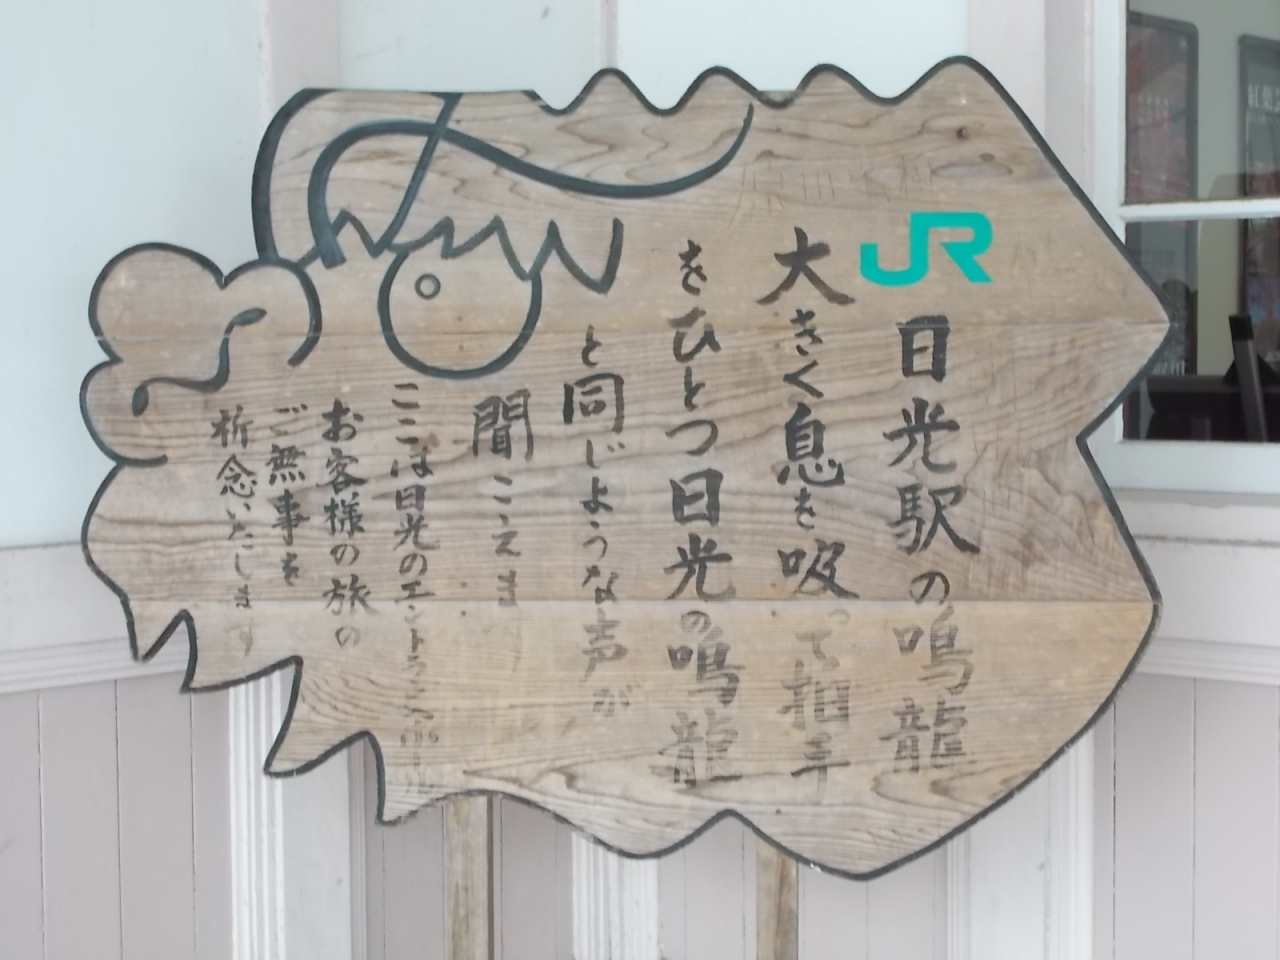 JR日光駅の鳴龍
大きく息を吸って拍手
をひとつ日光の鳴龍
と同じような声が
聞こえま
ここは日光のエントランス
お客様の旅の
ご無事を
祈念いたします